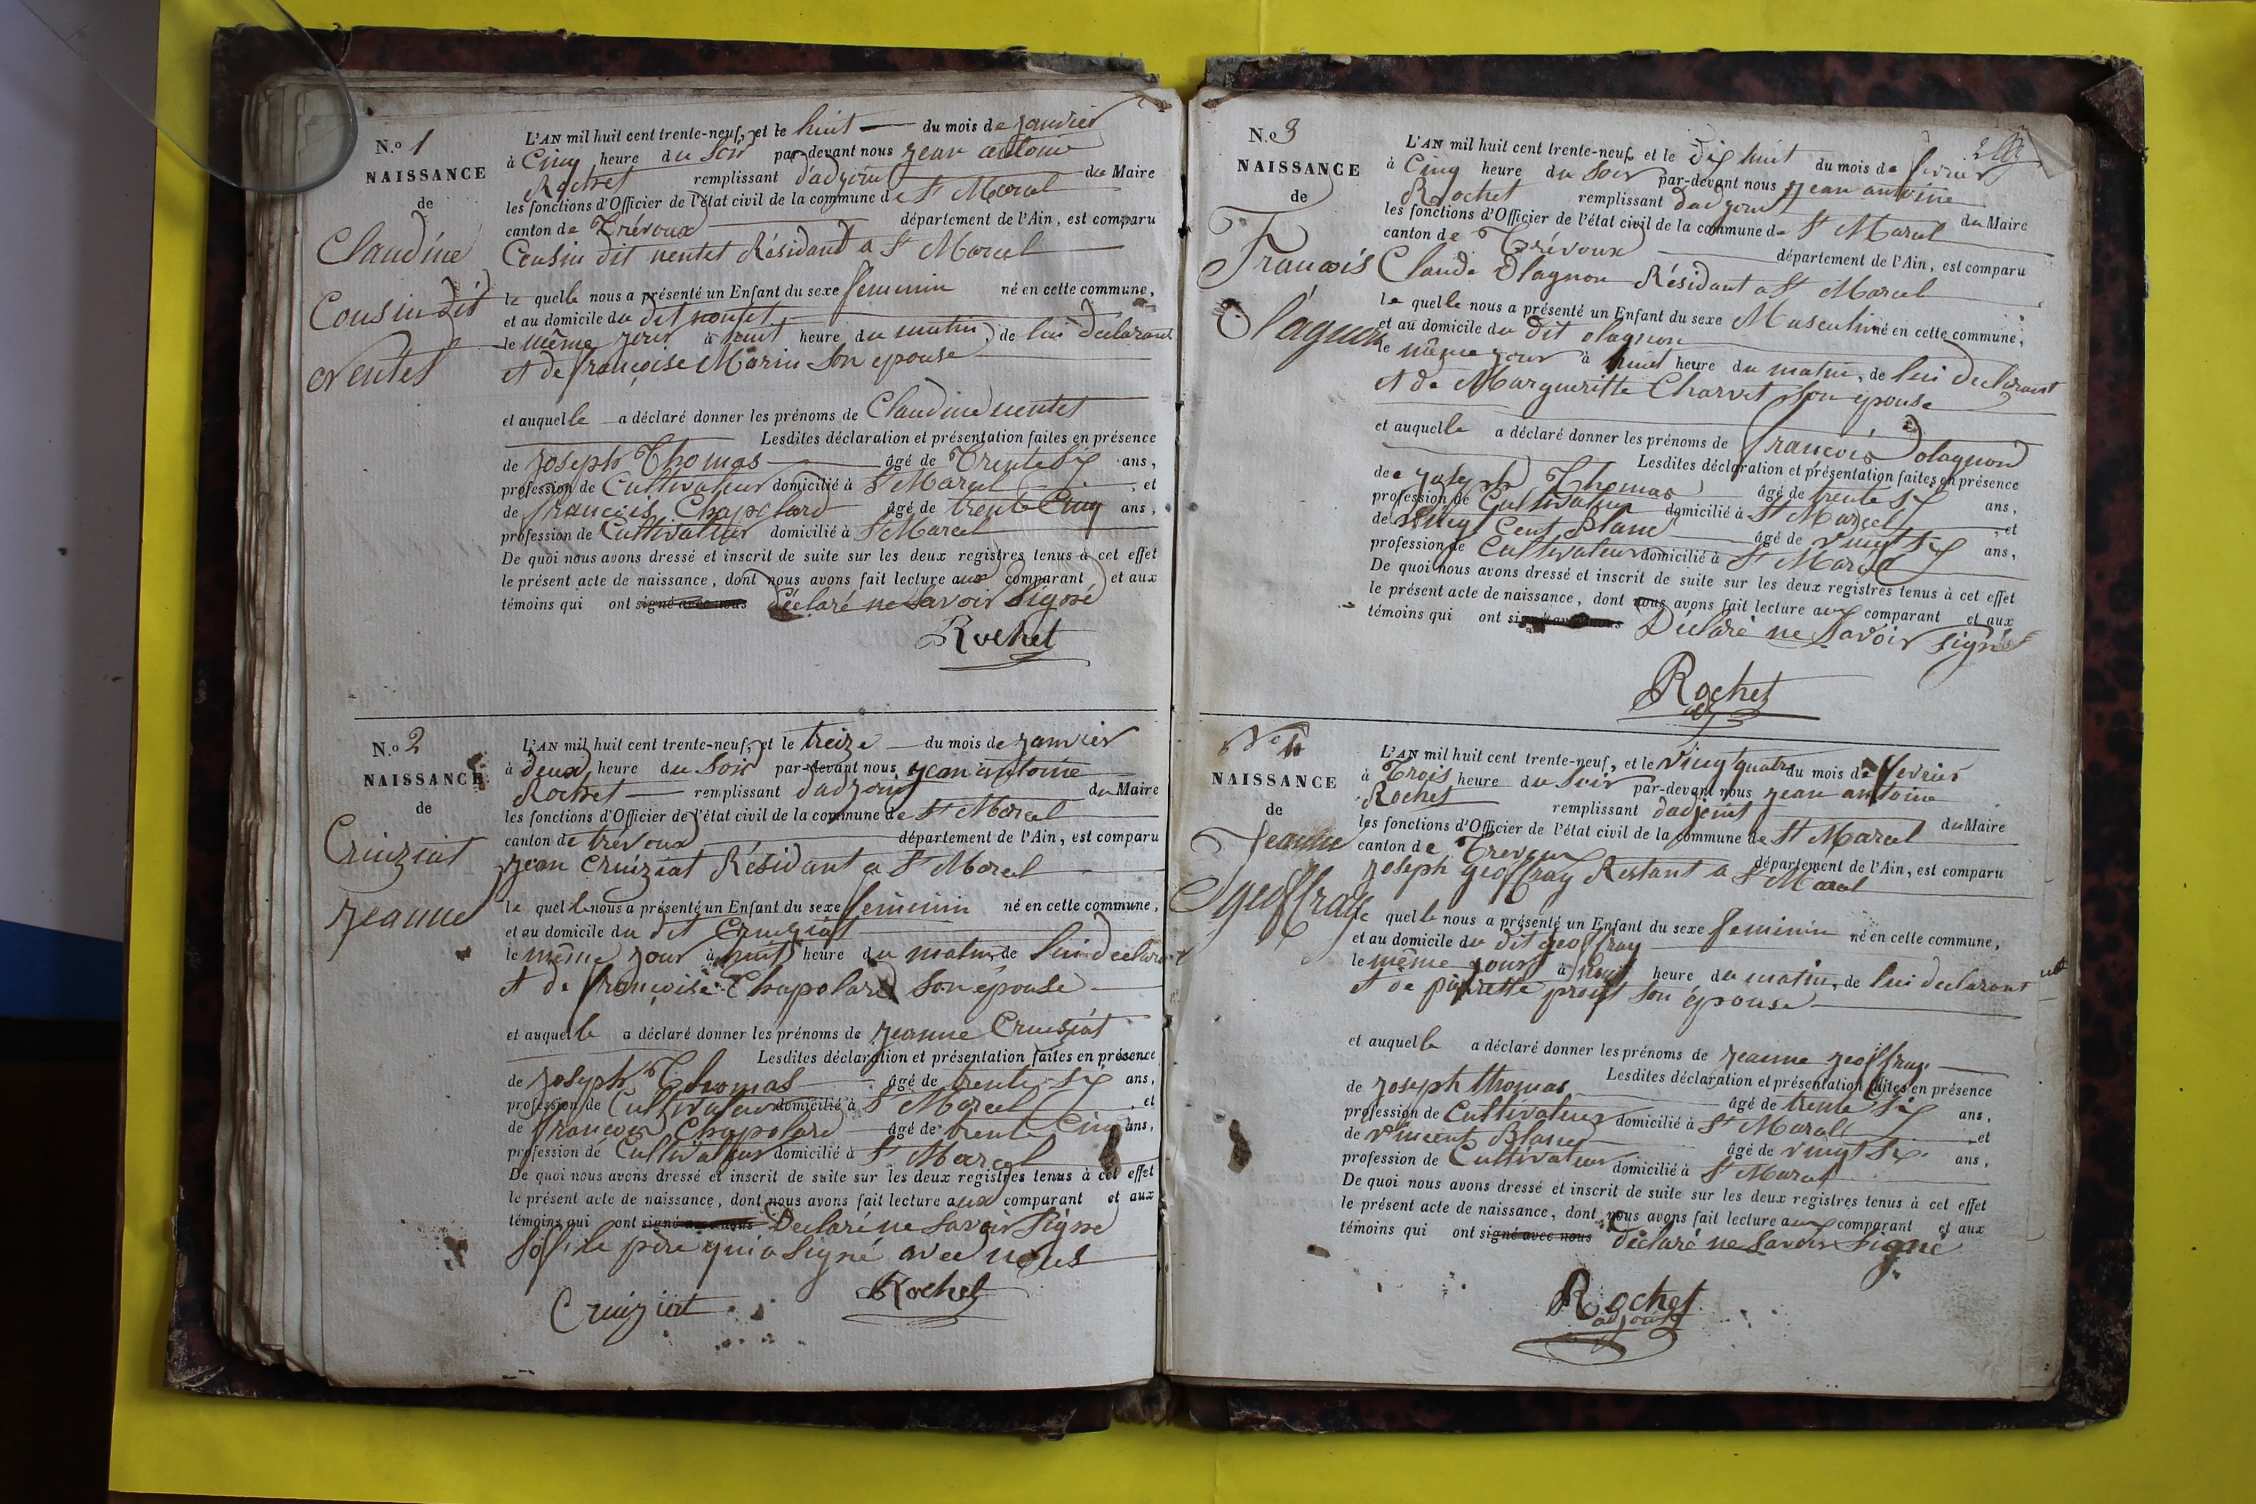 N.o 1
NAISSANCE
de
Claudine
Cousin dit
Nentet
L'AN mil huit cent trente-neuf, et le huit du mois de janvier
à Cinq heure du Soir par-devant nous jean antoine
Rochet remplissant d'adjoint du Maire
les fonctions d'Officier de l'état civil de la commune de St Marcel
canton de Trévoux département de l'Ain, est comparu
Cousin dit nentet Résidant a St Marcel
le quelle nous a présenté un Enfant du sexe feminin né en cette commune,
et au domicile du dit nentet
le même jour à huit heure du matin, de lui declarant
et de françoise Marin Son epouse
et auquelle a déclaré donner les prénoms de Claudine nentet
Lesdites déclaration et présentation faites en présence
de joseph Thomas âgé de Trente Six ans,
profession de Cultivateur domicilié à St Marcel et
de francois Chapolard âgé de trente Cinq ans,
profession de Cultivatteur domicilié à St Marcel
De quoi nous avons dressé et inscrit de suite sur les deux registres tenus à cet effet
le présent acte de naissance, dont nous avons fait lecture aux comparant et aux
témoins qui ont signé avec nous déclaré ne Savoir Signé
Rochet
N.o 2
NAISSANCE
de
Cruiziat
jeanne
L'AN mil huit cent trente-neuf, et le treize du mois de janvier
à deux heure du Soir par-devant nous jean antoine
Rochet remplissant d'adjoint du Maire
les fonctions d'Officier de l'état civil de la commune de St Marcel
canton de trévoux département de l'Ain, est comparu
jean Cruiziat Résidant a St Marcel
le quelle nous a présenté un Enfant du sexe feminin né en cette commune,
et au domicile du dit Cruiziat
le même jour à huit heure du matin de lui declarant
et de françoise Chapolard Son épouse
et auquelle a déclaré donner les prénoms de jeanne Cruisiat
Lesdites déclaration et présentation faites en présence
de joseph Thomas âgé de trente Six ans,
profession de Cultivateur domicilié à St Marcel et
de francois Chapolard âgé de trente Cinq ans,
profession de Cultivateur domicilié à St Marcel
De quoi nous avons dressé et inscrit de suite sur les deux registres tenus à cet effet
le présent acte de naissance, dont nous avons fait lecture aux comparant et aux
témoins qui ont signé avec nous Déclaré ne Savoir Signé
Sof le père qui a Signé avec nous
Cruiziat Rochet
N.o 3
NAISSANCE
de
François
Olagnon
L'AN mil huit cent trente-neuf, et le dix huit du mois de fevrier
à Cinq heure du Soir par-devant nous jean antoine
Rochet remplissant d'adjoint du Maire
les fonctions d'Officier de l'état civil de la commune de St Marcel
canton de Trévoux département de l'Ain, est comparu
Claude Olagnon Résidant a St Marcel
le quelle nous a présenté un Enfant du sexe Masculin né en cette commune,
et au domicile du dit olagnon
le même jour à huit heure du matin, de lui declarant
et de Margueritte Charvet Son épouse
et auquelle a déclaré donner les prénoms de francois olagnon
Lesdites déclaration et présentation faites en présence
de joseph Thomas âgé de trente Six ans,
profession de Cultivateur domicilié à St Marcel et
de Vingt Cent Blanc âgé de vingt Six ans,
profession de Cultivateur domicilié à St Marcel
De quoi nous avons dressé et inscrit de suite sur les deux registres tenus à cet effet
le présent acte de naissance, dont nous avons fait lecture aux comparant et aux
témoins qui ont signé avec nous Déclaré ne Savoir signé
Rochet
adj
No 4
NAISSANCE
de
Jeanne
geoffray
L'AN mil huit cent trente-neuf, et le vingt quatre du mois de fevrier
à Trois heure du Soir par-devant nous jean antoine
Rochet remplissant d'adjoint du Maire
les fonctions d'Officier de l'état civil de la commune de St Marcel
canton de Trevoux département de l'Ain, est comparu
joseph geoffray Restant a St Marcel
le quelle nous a présenté un Enfant du sexe feminin né en cette commune,
et au domicile du dit geoffray
le même jour à huit heure du matin, de lui declarant
et de pierrette prost son épouse
et auquelle a déclaré donner les prénoms de jeanne jeoffray
Lesdites déclaration et présentation faites en présence
de joseph thomas âgé de trente Six ans,
profession de Cultivateur domicilié à St Marcel et
de vincent Blanc âgé de vingt Six ans,
profession de Cultivateur domicilié à St Marcel
De quoi nous avons dressé et inscrit de suite sur les deux registres tenus à cet effet
le présent acte de naissance, dont nous avons fait lecture aux comparant et aux
témoins qui ont signé avec nous déclaré ne Savoir Signé
Rochet
adjoint